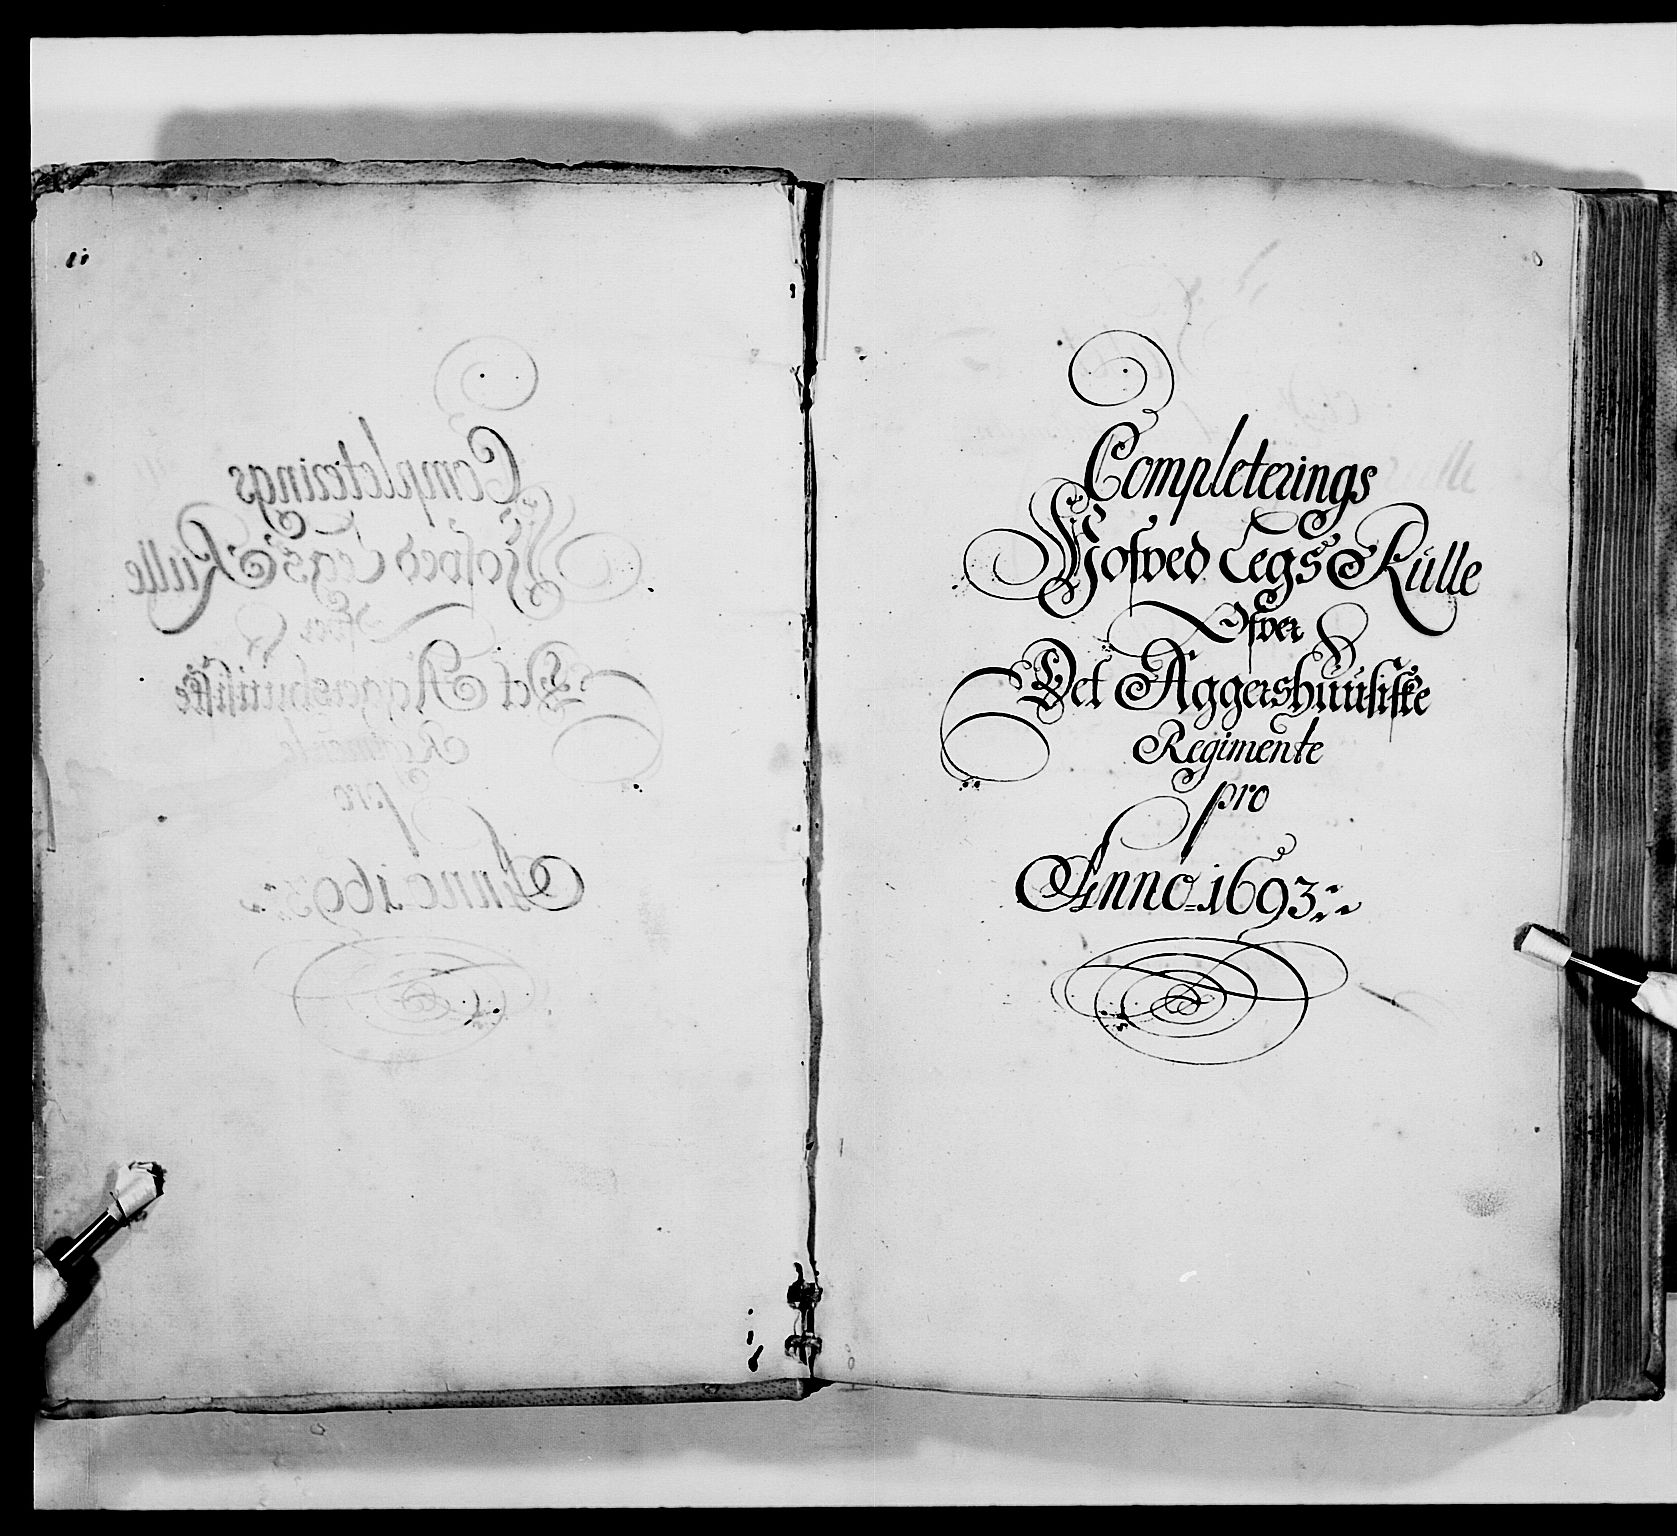 Completerings
Hofved Legs Rulle
Ofver
Det Aggershuusiske
Regimente
pro
Anno 1693